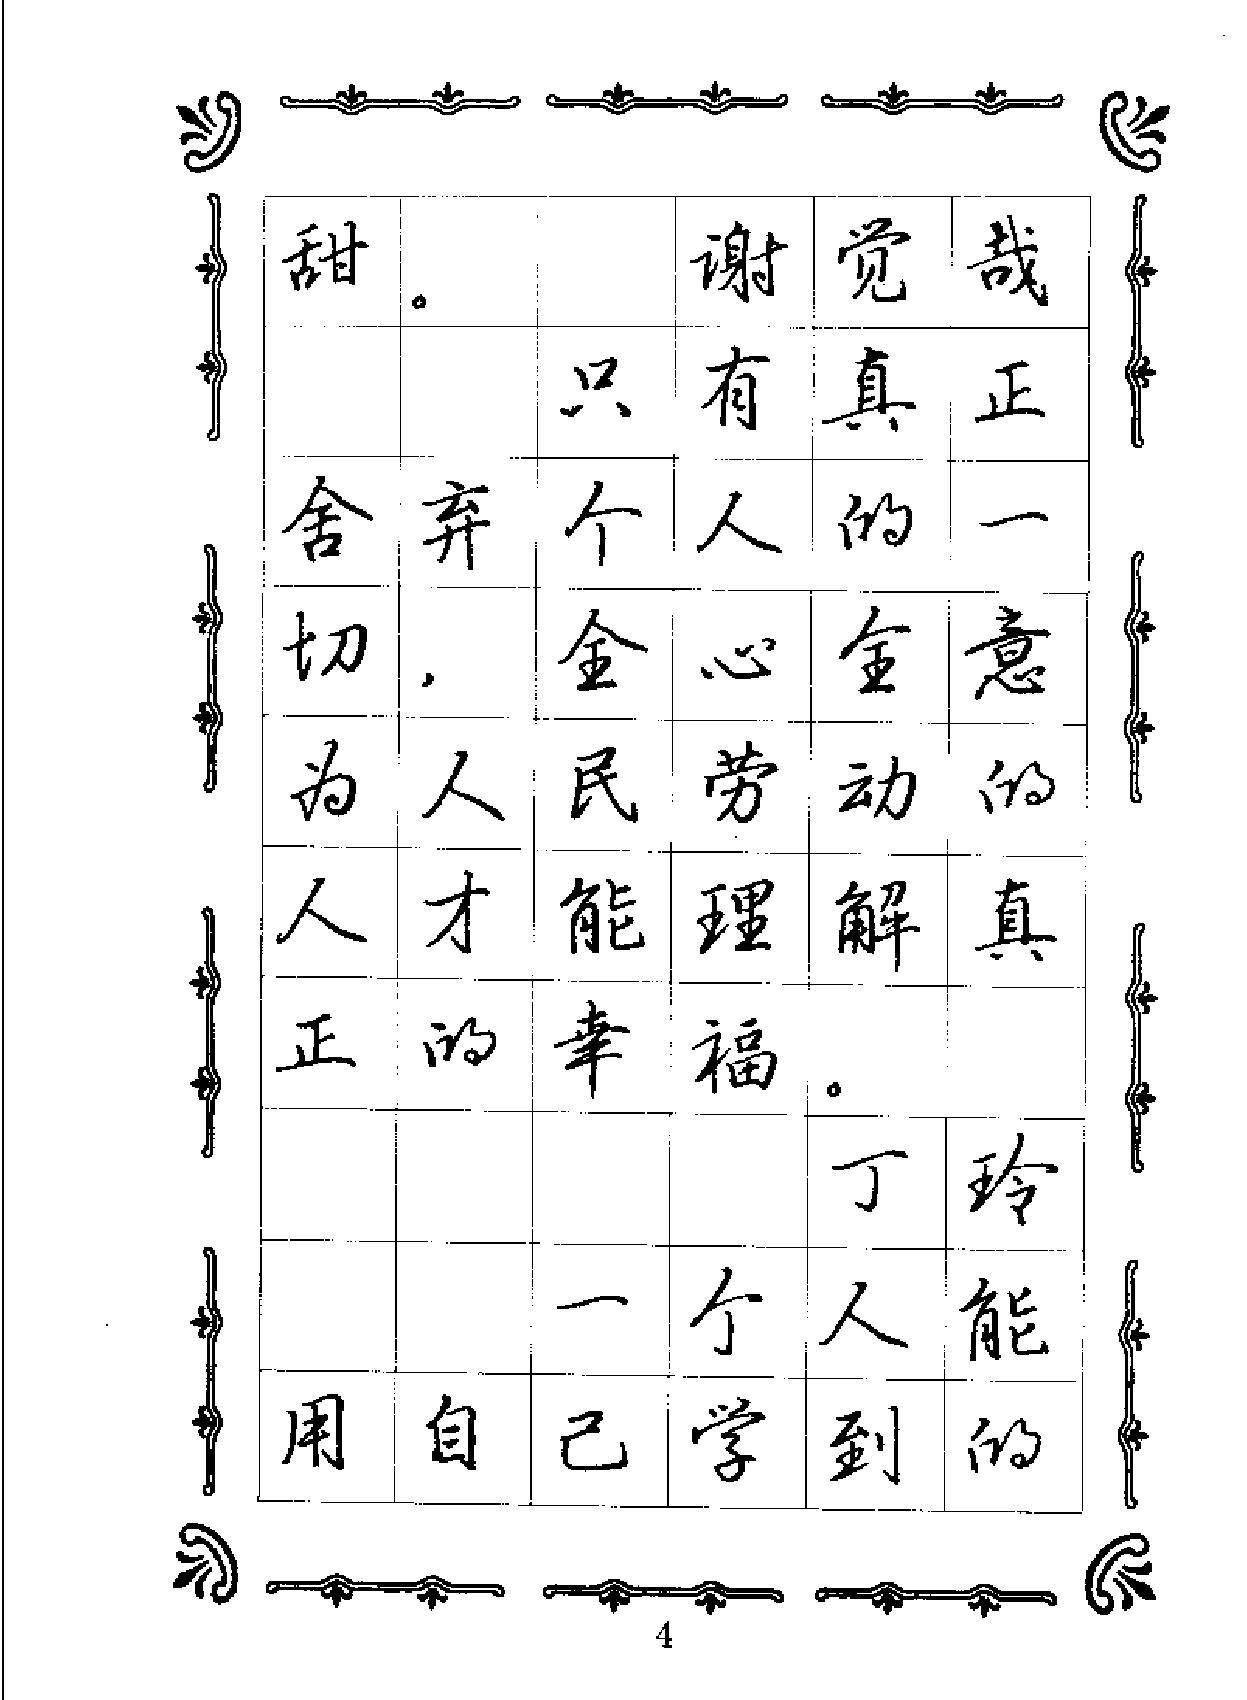 甜。 谢觉哉
只有真正
舍弃个人的一
切，全心全意
为人民劳动的
人才能理解真
正的幸福。
丁玲
一个人能
用自己学到的
4